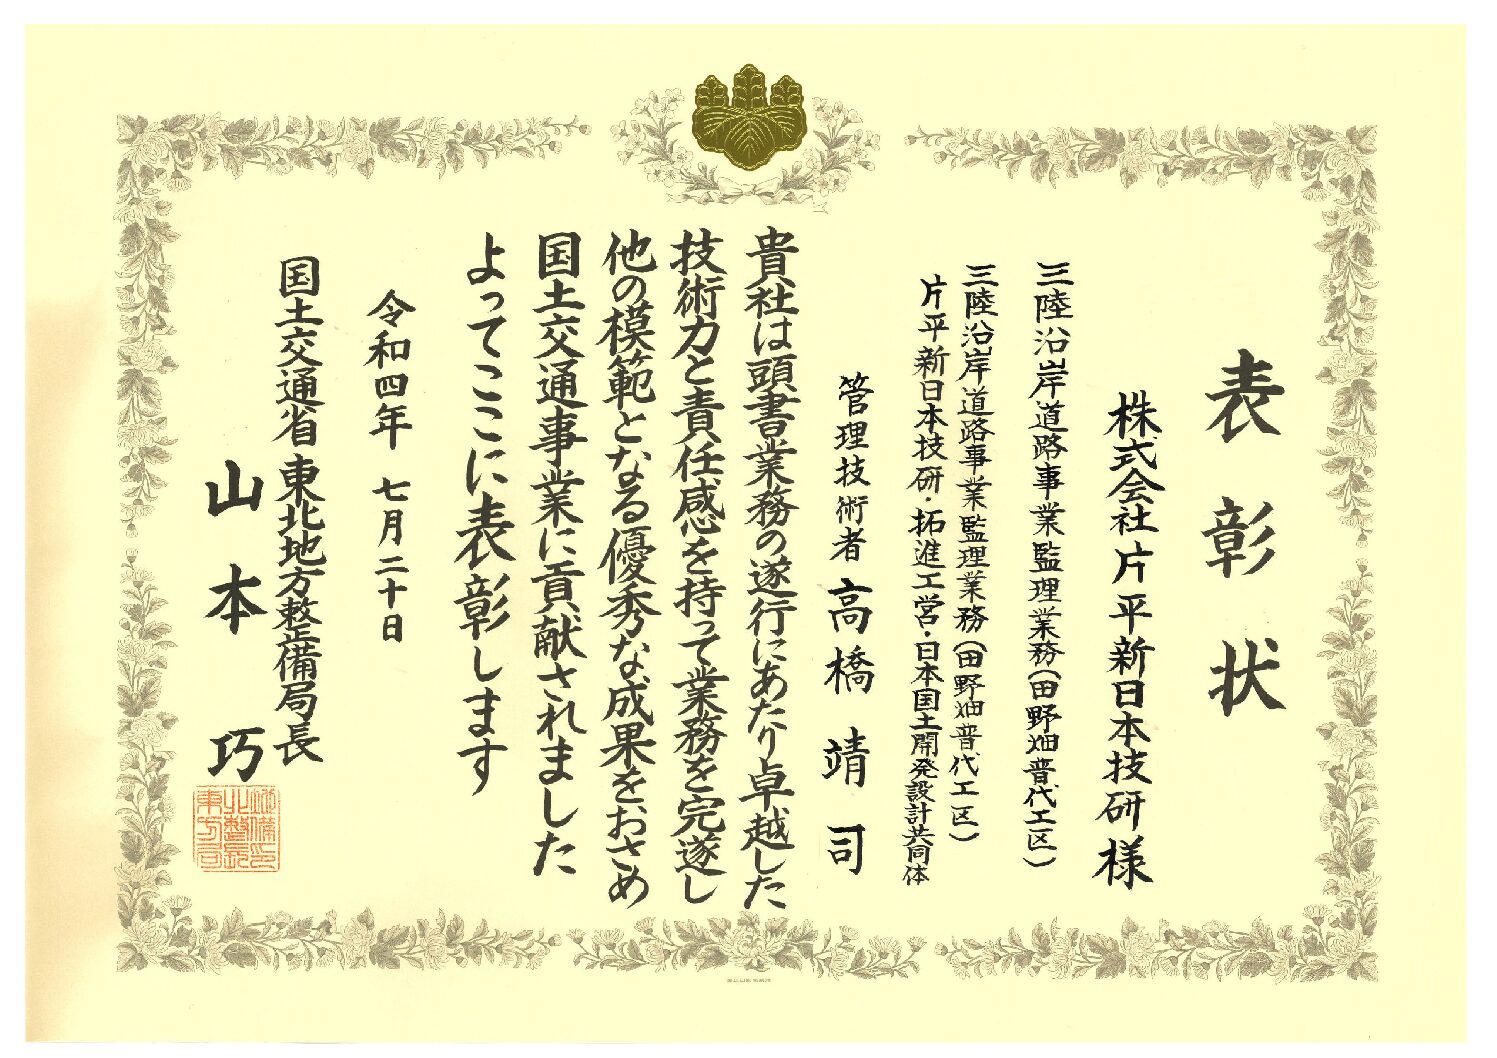 表彰状
株式会社片平新日本技研様
三陸沿岸道路事業監理業務(田野畑普代工区)
三陸沿岸道路事業監理業務(田野畑普代工区)
片平新日本技研・拓進工営・日本国土開発設計共同体
管理技術者高橋靖司
貴社は頭書業務の遂行にあたり卓越した
技術力と責任感を持って業務を完遂し
他の模範となる優秀な成果をおさめ
国土交通事業に貢献されました
よってここに表彰します
令和四年七月二十日
国土交通省東北地方整備局長
山本巧